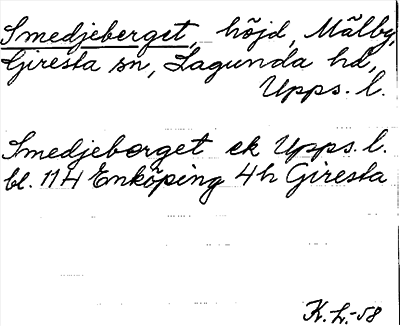 Smedjeberget, höjd, Mälby,
Giresta sn, Lagunda hd,
Upps. l.
Smedjeberget ek Upps. l.
bl. 114 Enköping 4h Giresta
K. L. -58